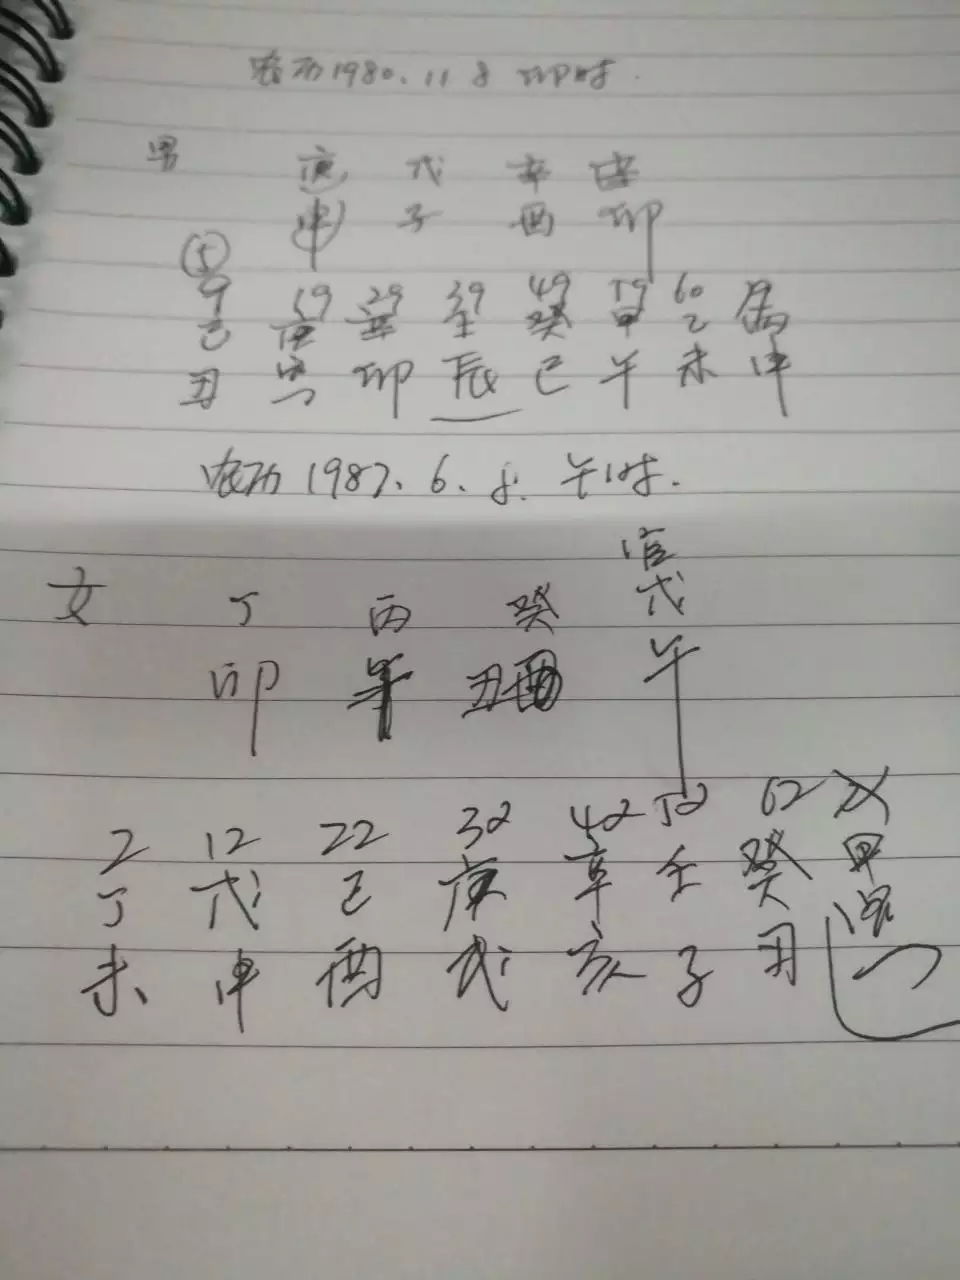 农历1980.11 8 卯时.
男 庚 戊 辛 辛
申 子 酉 卯
⑤
9 19 29 39 49 59 60
己 庚 辛 壬 癸 甲 乙 丙
丑 寅 卯 辰 巳 午 未 申
农历1987.6.8. 午时.
官
女 丁 丙 癸 戊
卯 午 丑 酉 午
2 12 22 32 42 52 62 72
丁 戊 己 庚 辛 壬 癸 甲
未 申 酉 戌 亥 子 丑 寅